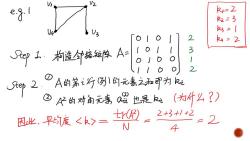 e.g.1
V₁ V₂
V₄ V₃
k₁=2
k₂=3
k₃=1
k₄=2
Step 1. 构造邻接矩阵 A=
0 1 0 1 2
1 0 1 1 3
0 1 0 0 1
1 1 0 0 2
Step 2. ① A的第i行(列)的元素之和即为ki
② A²的对角元素 aᵢᵢ⁽²⁾ 也是ki (为什么?)
因此, 平均度 <k> = tr(A²)/N = 2+3+1+2/4 = 2